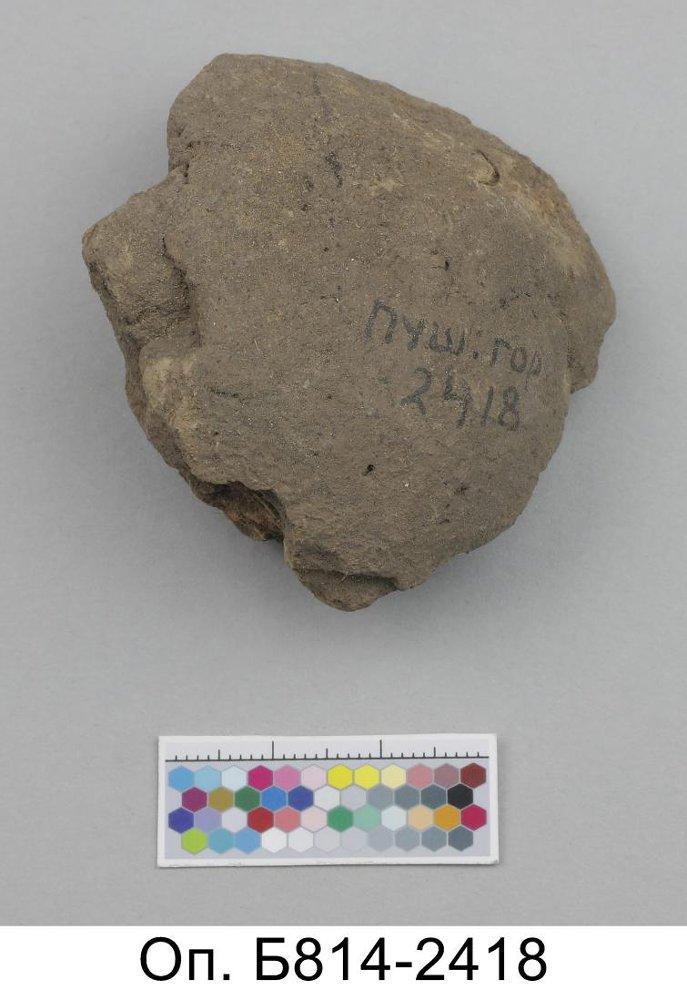 ПУШ. ГОР
2418
Оп. Б814-2418